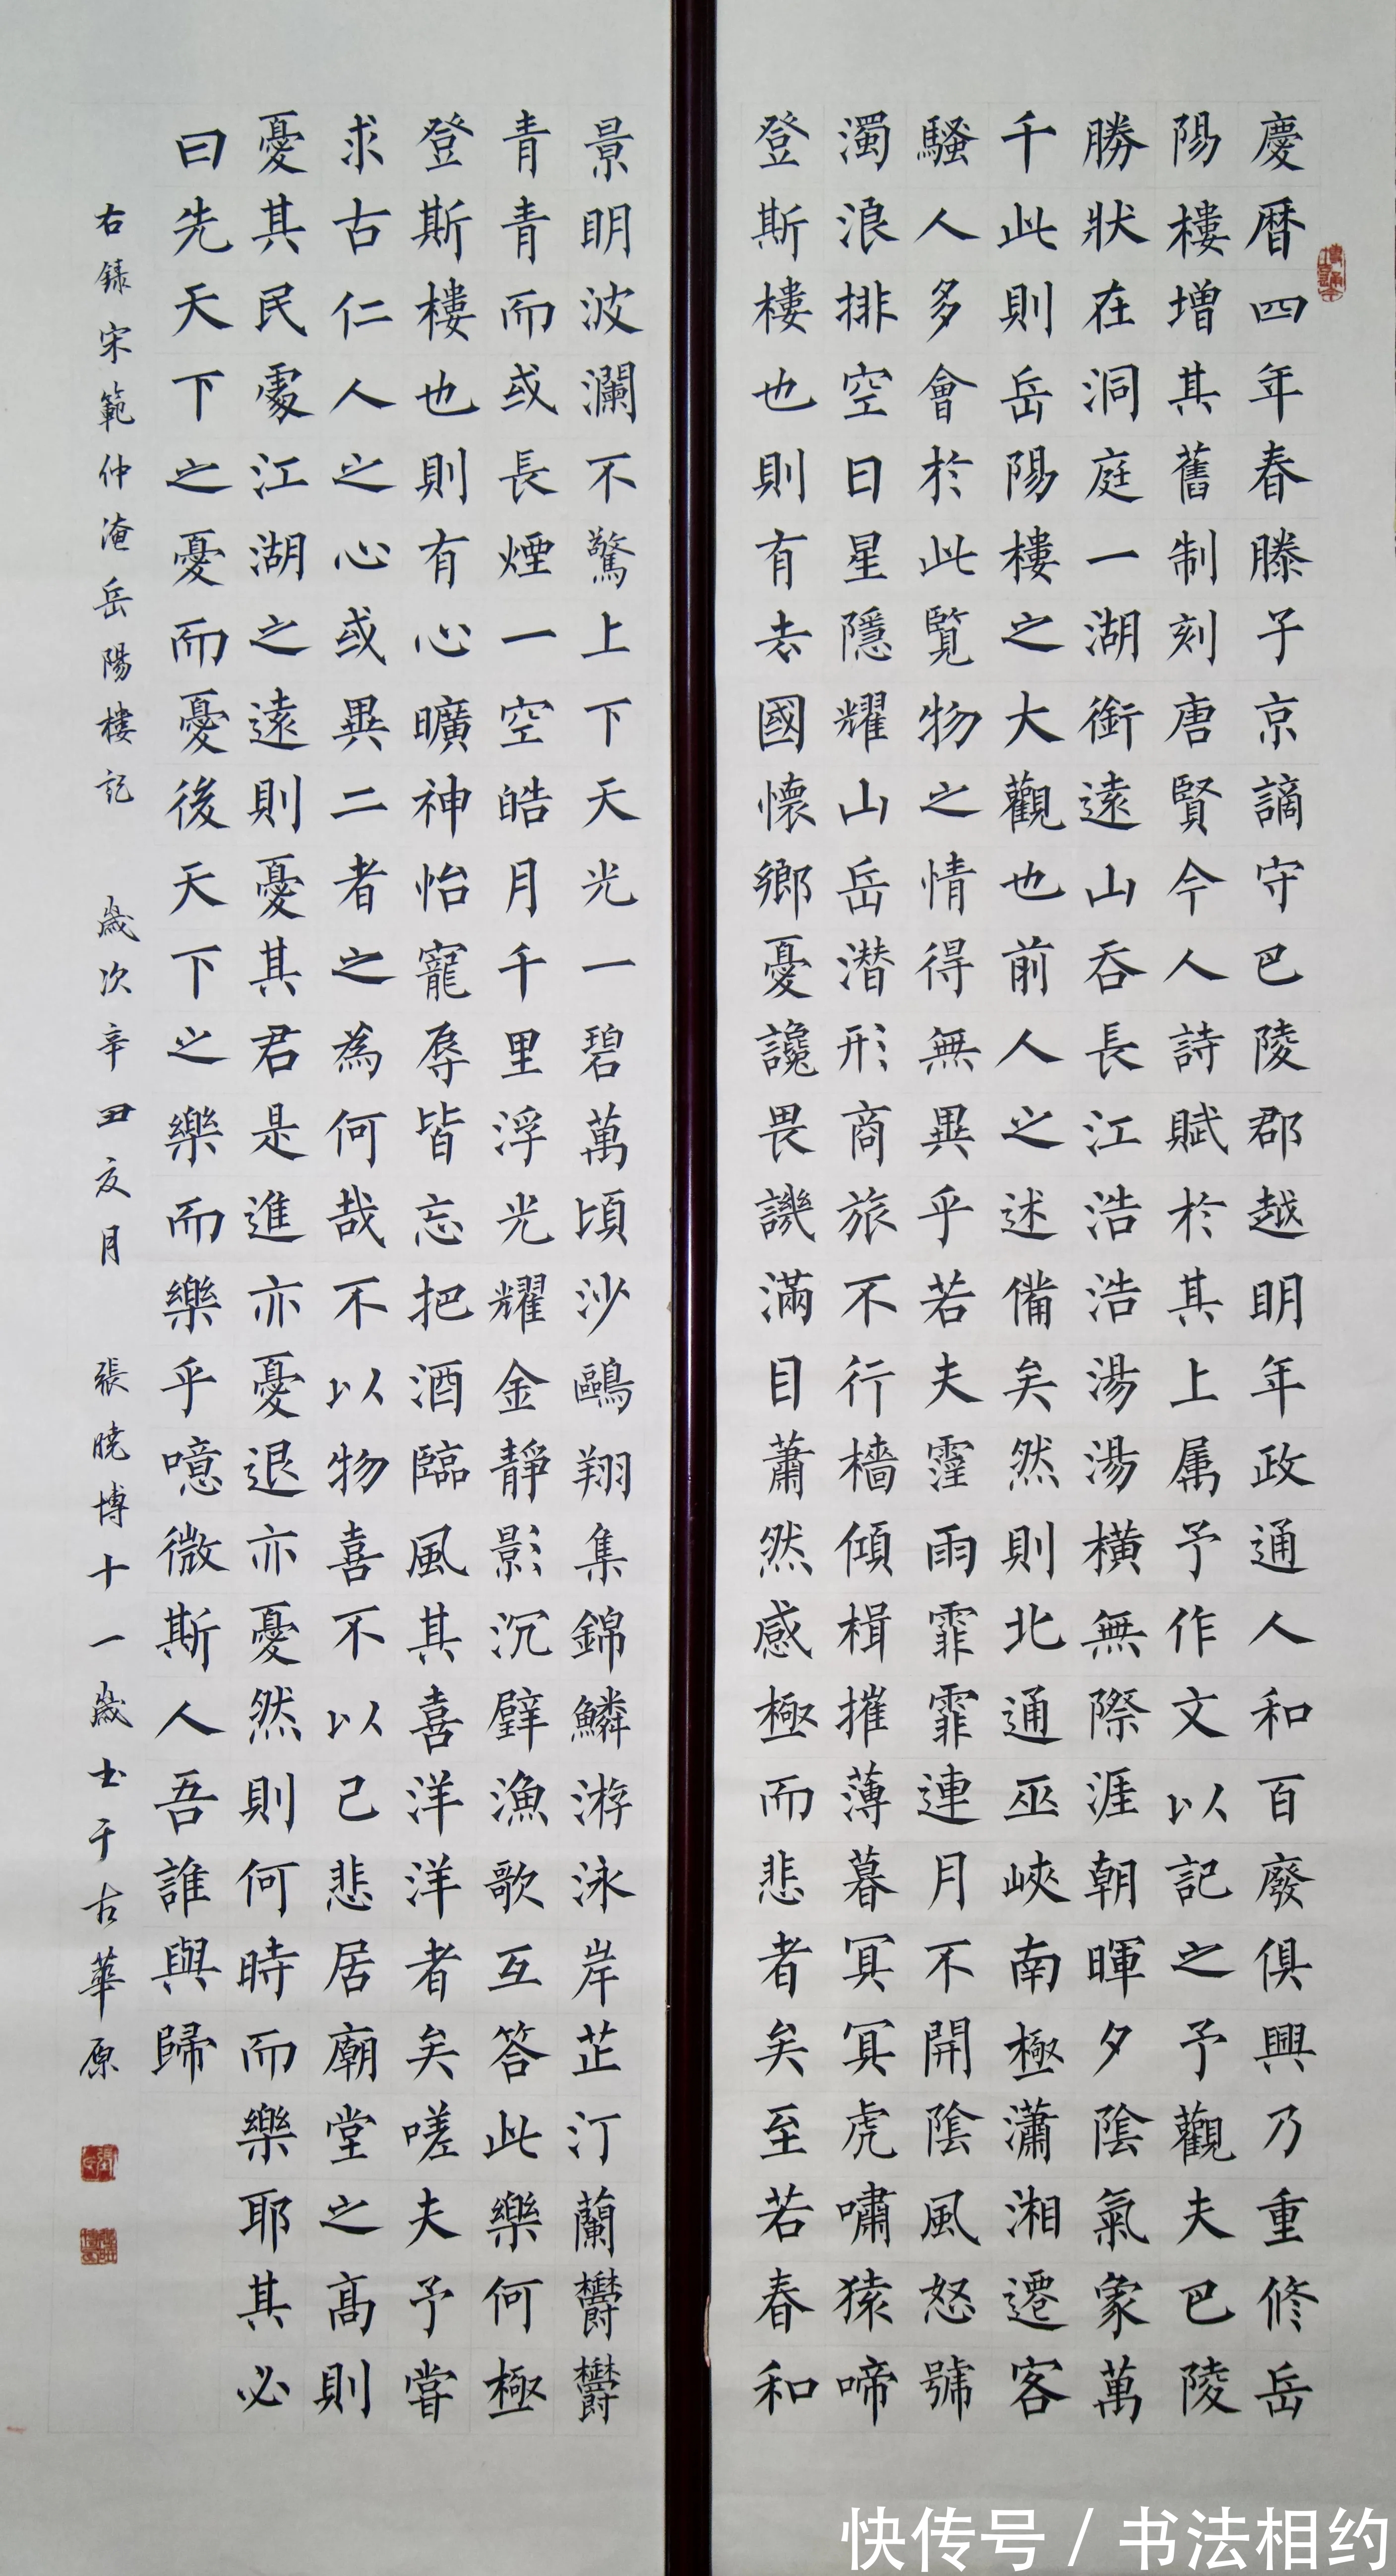 慶暦四年春滕子京謫守巴陵郡越明年政通人和百廢俱興乃重修岳
陽樓增其舊制刻唐賢今人詩賦於其上属予作文以記之予觀夫巴陵
勝狀在洞庭一湖銜遠山吞長江浩浩湯湯橫無際涯朝暉夕陰氣象萬
千此則岳陽樓之大觀也前人之述備矣然則北通巫峽南極瀟湘遷客
騷人多會於此覽物之情得無異乎若夫霪雨霏霏連月不開陰風怒號
濁浪排空日星隱耀山岳潛形商旅不行檣傾楫摧薄暮冥冥虎嘯猿啼
登斯樓也則有去國懷鄉憂讒畏譏滿目蕭然感極而悲者矣至若春和
景明波瀾不驚上下天光一碧萬頃沙鷗翔集錦鱗游泳岸芷汀蘭欝欝
青青而或長煙一空皓月千里浮光耀金靜影沉璧漁歌互答此樂何極
登斯樓也則有心曠神怡寵辱皆忘把酒臨風其喜洋洋者矣嗟夫予嘗
求古仁人之心或異二者之為何哉不以物喜不以己悲居廟堂之高則
憂其民處江湖之遠則憂其君是進亦憂退亦憂然則何時而樂耶其必
曰先天下之憂而憂後天下之樂而樂乎噫微斯人吾誰與歸
右錄宋範仲淹岳陽樓記 歲次辛丑夏月 張曉博十一歲書于古華原
快传号 / 书法相约